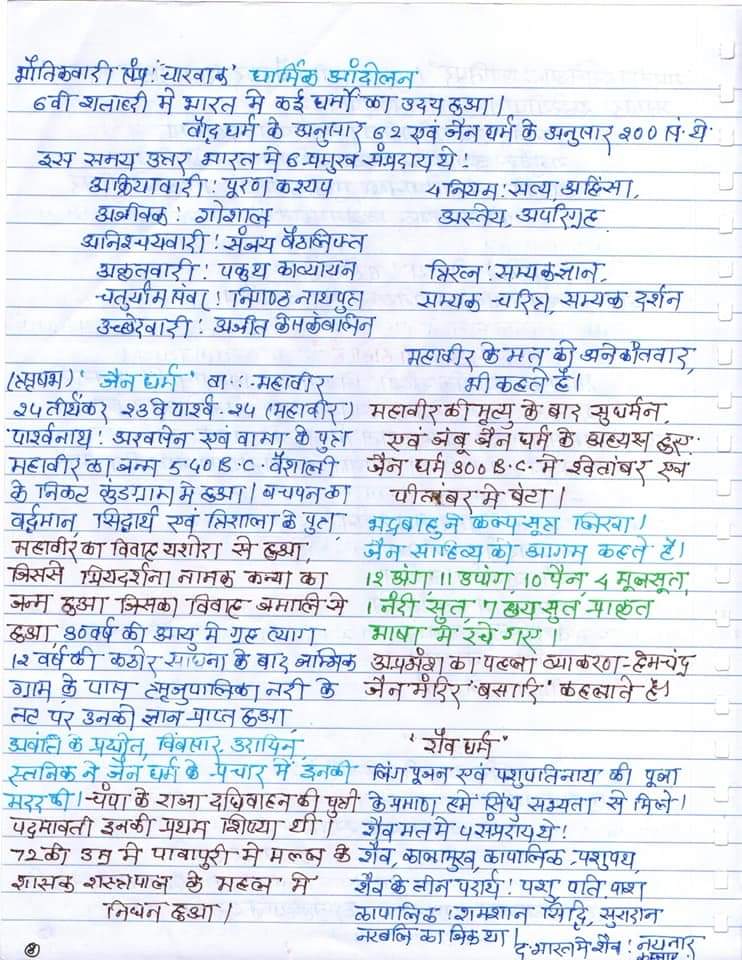 भौतिकवादी संप्र: चारवाक धार्मिक आंदोलन
6वी शताब्दी मे भारत मे कई धर्मो का उदय हुआ।
बौद्ध धर्म के अनुसार 62 एवं जैन धर्म के अनुसार 200 सं. थे
इस समय उत्तर भारत मे 6 प्रमुख संप्रदाय थे!
अक्रियावादी: पूरण कश्यप
अजीवक: गोशाल
अनिश्चयवादी! संजय
अकृतवादी! पकुध कात्यायन
चतुर्याम संवर! निगण्ठ नाथपुत्त
उच्छेदवादी: अजीत केसकंबालिन
4 नियम: सत्य, अहिंसा,
अस्तेय, अपरिग्रह
त्रिरत्न: सम्यक ज्ञान,
सम्यक चरित्र, सम्यक दर्शन
महावीर के मत को अनेकांतवाद,
भी कहते है।
(ऋषभ) 'जैन धर्म' वा.: महावीर
24 तीर्थकर 23वे पार्श्व. 24 (महावीर)
पार्श्वनाथ: अश्वसेन एवं वामा के पुत्र
महावीर का जन्म 540 B.C. वैशाली
के निकट कुंडग्राम मे हुआ। बचपन का
वर्द्धमान, सिद्धार्थ एवं त्रिशाला के पुत्र,
महावीर का विवाह यशोदा से हुआ,
जिससे प्रियदर्शना नामक कन्या का
जन्म हुआ जिसका विवाह जमालि से
हुआ, 30 वर्ष की आयु मे गृह त्याग
12 वर्ष की कठोर साधना के बाद जाम्भिक
ग्राम के पास ऋजुपालिका नदी के
तट पर उनको ज्ञान प्राप्त हुआ,
अवंति के प्रद्योत, बिंबसार, उदायिन,
ने जैन धर्म के प्रचार में इनकी
मदद की। चंपा के राजा दधिवाहन की पुत्री
पदमावती इनकी प्रथम शिष्या थी।
72 की उम्र मे पावापुरी मे मल्ल के
शासक के महल मे
निधन हुआ।
महावीर की मृत्यु के बाद सुधर्मन,
एवं जंबू जैन धर्म के अध्यक्ष हुए.
जैन धर्म 300 B.C. मे श्वेतांबर एवं
पीतांबर मे बंटा।
भद्रबाहु ने कल्प सूत्र लिखा।
जैन साहित्य को आगम कहते है।
12 अंग, 11 उपांग, 10 पैन, 4 मूलसूत्र,
1 नंदी सूत्र, 7 छेय सूत्र प्राकृत
भाषा मे रचे गए।
अपभ्रंश का पहला व्याकरण - हेमचंद्र
जैन मंदिर 'बसादि' कहलाते है।
'शैव धर्म'
लिंग पूजन एवं पशुपतिनाथ की पूजा
के प्रमाण हमे सिंधु सभ्यता से मिले।
शैव मत मे 4 संप्रदाय थे!
शैव, कालामुख, कापालिक, पशुपथ,
शैव के तीन पदार्थ! पशु, पति, पाश
कापालिक! शमशान सिद्धि, सुरादान
नरबलि का जिक्र था।
द. भारत मे शैव: नयनार
8